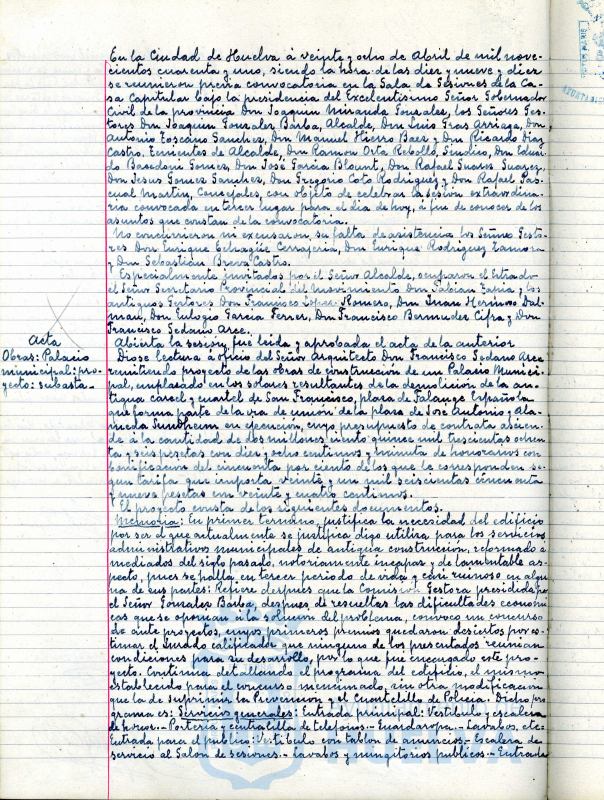 En la Ciudad de Huelva á veinte y ocho de Abril de mil nove-
cientos cuarenta y uno, siendo la hora de las diez y nueve y diez
se reunieron previa convocatoria en la Sala de Sesiones de la Ca-
sa Capitular bajo la presidencia del Excelentísimo Señor Gobernador
Civil de la provincia Don Joaquin Miranda González, los Señores Ges-
tores Don Joaquin Gonzalez Barba, Alcalde, Don Luis Gras Arriaga, Don
Antonio Toscano Sanchez, Don Manuel Hierro Baez y Don Ricardo Diaz
Castro, Tenientes de Alcalde, Don Ramon Orta Rebollo, Sindico, Don Eduar-
do Bacedoni Gomez, Don José Garcia Blount, Don Rafael Suarez Suarez,
Don Jesus Gomez Sanchez, Don Gregorio Coto Rodriguez y Don Rafael Pas-
cual Martin, Concejales, con objeto de celebrar la sesión extraordina-
ria convocada en tercer lugar para el dia de hoy, á fin de conocer de los
asuntos que constan de la convocatoria.
No concurrieron ni excusaron su falta de asistencia los Señores Gesto-
res Don Enrique Echagüe Cerrajeria, Don Enrique Rodriguez Zamora
y Don Sebastián Breva Castro.
Especialmente invitados por el Señor Alcalde, ocuparon el Estrado
el Señor Secretario Provincial del Movimiento Don Fabian Zapia y los
antiguos Gestores Don Francisco Lopez Romero, Don Juan Hermoso Dal-
mau, Don Eulogio Garcia Ferrer, Don Francisco Bermudez Cifra y Don
Francisco Sedano Arce.
Abierta la sesión, fué leida y aprobada el acta de la anterior
Acta
Obras: Palacio
municipal: pro-
yecto: subasta.
Diose lectura á oficio del Señor Arquitecto Don Francisco Sedano Arce
remitiendo proyecto de las obras de construcción de un Palacio Munici-
pal, emplazado en los solares resultantes de la demolición de la an-
tigua carcel y cuartel de San Francisco, plaza de Falange Española
que forma parte de la via de unión de la plaza de José Antonio y Ala-
meda Sundheim en ejecución, cuyo presupuesto de contrata ascien-
de á la cantidad de dos millones ciento quince mil trescientas ochen-
ta y seis pesetas con diez y ocho centimos y minuta de honorarios con
bonificacion del cincuenta por ciento de los que le corresponden se-
gun tarifa que importa veinte y un mil seiscientas cincuenta
y nueve pesetas con veinte y cuatro centimos.
El proyecto consta de los siguientes documentos.
Memoria: En primer termino, justifica la necesidad del edificio
por ser el que actualmente se justifica digo utiliza para los servicios
administrativos municipales de antigua construcción, reformado á
mediados del siglo pasado, notoriamente incapaz y de lamentable as-
pecto, pues se halla en tercer periodo de vida y casi ruinoso en algu-
na de sus partes: Refiere despues que la Comisión Gestora presidida por
el Señor Gonzalez Barba, despues de resueltas las dificultades economi-
cas que se oponian á la solucion del problema, convocó un concurso
de ante proyectos, cuyos primeros premios quedaron desiertos por es-
timar el Jurado calificador que ninguno de los presentados reunian
condiciones para su desarrollo, por lo que fué encargado este pro-
yecto. Continua detallando el programa del edificio, el mismo
establecido para el concurso mencionado sin otra modificacion
que la de suprimir la Prevencion y el Cuartelillo de Policia. Dicho pro-
grama es: Servicios generales: Entrada principal: Vestibulo y escalera
de honor.- Porteria y centralilla de telefonos.- Guardaropa.- Lavabos, etc:
Entrada para el publico: Vestibulo con tablon de anuncios.- Escalera de
servicio al Salon de sesiones.- Lavabos y mingitorios publicos.- Entrada